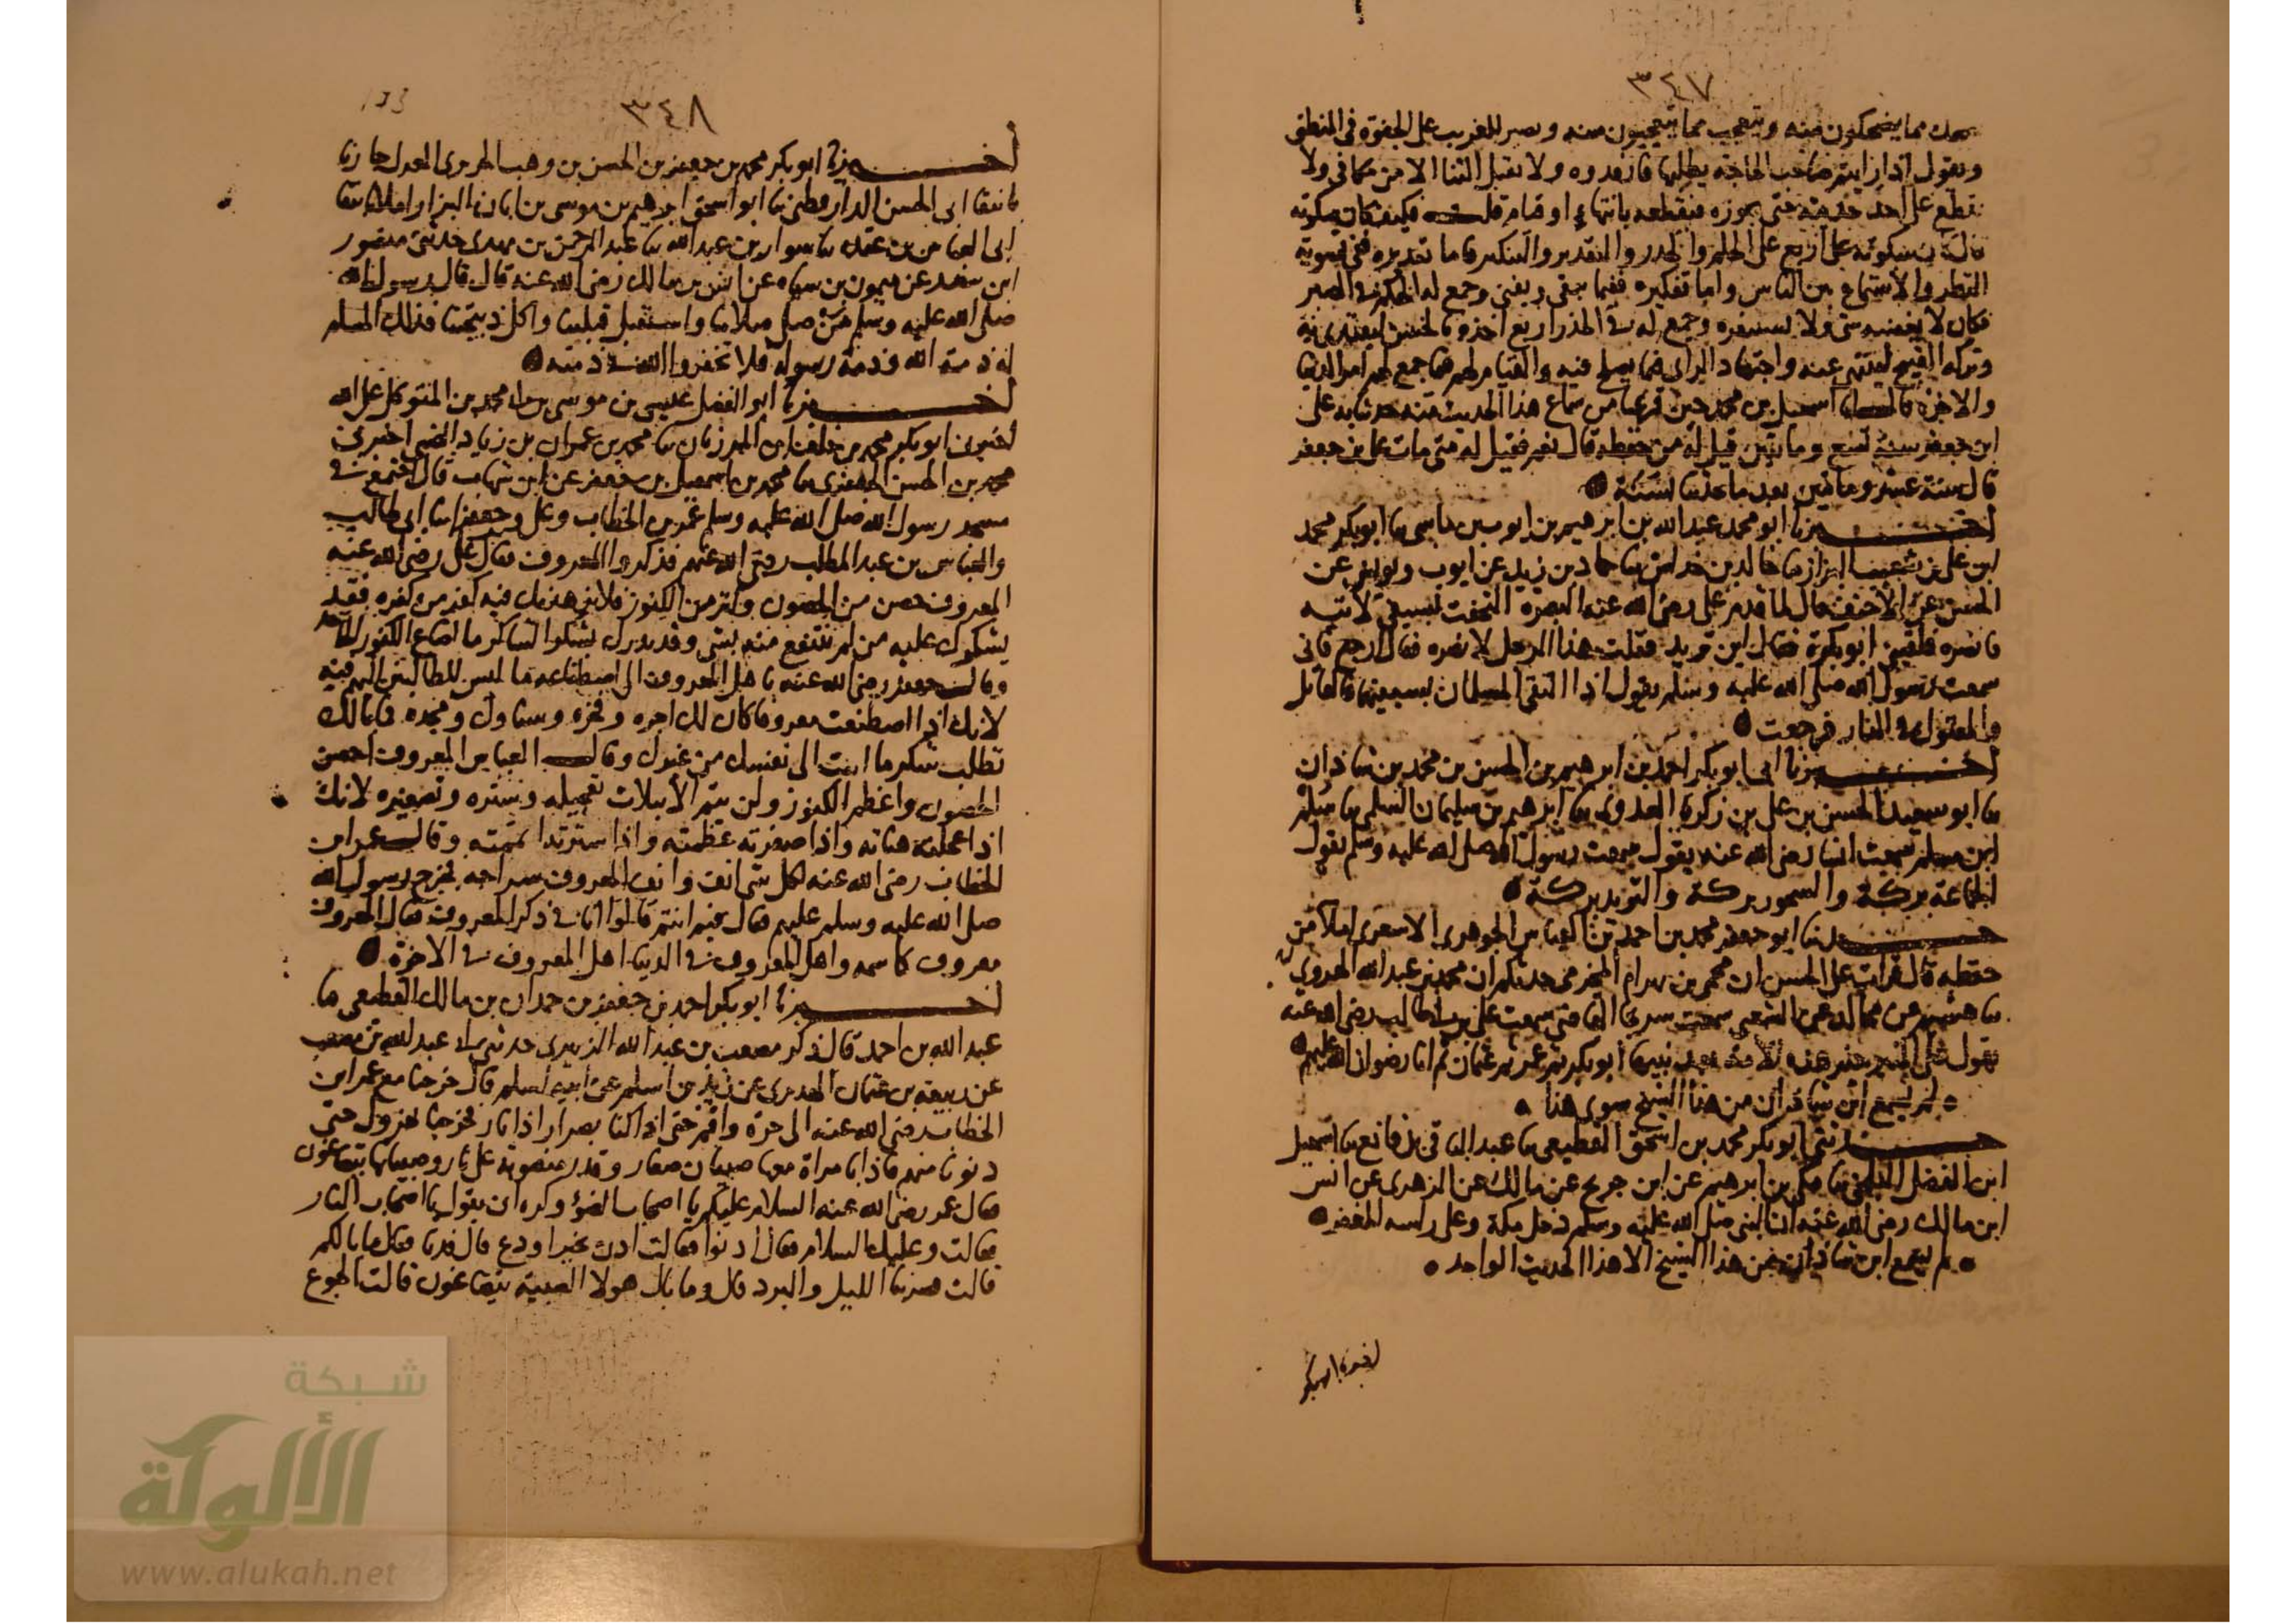 ٣٤٧
يضحك مما يضحكون منه ويتعجب مما يتعجبون منه ويصبر للغريب على الجفوة في المنطق
ويقول اذا رايتم صاحب الحاجة يطلبها فارفدوه ولا يقبل الثنا الا من مكافي ولا
يقطع على احد حديثه حتى يجوزه فيقطعه بانتهاء او قيام قلت فكيف كان سكوته
قال كان سكوته على اربع على الحلم والحذر والتقدير والتفكير فاما تقديره ففي تسويته
النظر والاستماع بين الناس واما تفكيره ففيما يبقى ويفنى وجمع له الحلم في الصبر
فكان لا يغضبه شي ولا يستنفره وجمع له في الحذر اربع اخذه بالحسن ليقتدى به
وتركه القبيح لينتهى عنه واجتهاد الراى فيما يصلح فيه والقيام لهم فيما جمع لهم امر الدنيا
والاخرة قال لنا اسمعيل بن محمد حين فرغنا من سماع هذا الحديث منه حدثنا به على
ابن جعفر سنة تسع وماتين قيل له من حفظه قال نعم فقيل له متى مات على بن جعفر
قال سنة عشر وماتين بعد ما حدثنا بسنة
اخبرنا ابو محمد عبد الله بن ابرهيم بن ايوب بن ماسى نا ابو بكر محمد
ابن على بن شعيب البزاز نا خالد بن خداش نا حماد بن زيد عن ايوب ويونس عن
الحسن عن الاحنف قال لما قدم على رضى الله عنه البصرة التحفت بسيفى لاتيه
فانصره فلقينى ابو بكرة فقال اين تريد فقلت هذا الرجل لانصره فقال ارجع فانى
سمعت رسول الله صلى الله عليه وسلم يقول اذا التقى المسلمان بسيفيهما فالقاتل
والمقتول فى النار فرجعت
اخبرنا ابى ابو بكر احمد بن ابرهيم بن الحسن بن محمد بن شاذان
نا ابو سعيد الحسن بن على بن زكريا العدوى نا ابرهيم بن سليمان السلمى نا مسلم
ابن مسلم سمعت انسا رضى الله عنه يقول سمعت رسول الله صلى الله عليه وسلم يقول
الجماعة بركة والسحور بركة والثريد بركة
حدثنا ابو جعفر محمد بن احمد بن العباس الجوهرى الاشعرى املا من
حفظه قال قرات على الحسن بن محمى بن بهرام المخرمى حدثكم ان محمد بن عبد الله الهروى
نا هشيم عن مجالد عن الشعبى سمعت شريحا القاضى سمعت على بن ابى طالب رضى الله عنه
يقول على المنبر خير هذه الامة بعد نبيها ابو بكر ثم عمر ثم عثمان ثم انا رضوان الله عليهم
لم يسمع ابن شاذان من هذا الشيخ سوى هذا
حدثنى ابو بكر محمد بن اسحق القطيعى نا عبد الباقى بن قانع نا اسمعيل
ابن الفضل البلخى نا مكى بن ابرهيم عن ابن جريج عن مالك عن الزهرى عن انس
ابن مالك رضى الله عنه ان النبى صلى الله عليه وسلم دخل مكة وعلى راسه المغفر
لم يسمع ابن شاذان من هذا الشيخ الا هذا الحديث الواحد
اخبرنا ابو بكر
٣٤٨
اخبرنا ابو بكر محمد بن جعفر بن الحسن بن وهب الحريرى المعدل جارنا
بانتقا ابى الحسن الدارقطنى نا ابو اسحق ابرهيم بن موسى بن البزار املا بانتقا
ابى العباس بن عقدة نا سوار بن عبد الله نا عبد الرحمن بن مهدى حدثنى منصور
ابن سعد عن ميمون بن سياه عن انس بن مالك رضى الله عنه قال قال رسول الله
صلى الله عليه وسلم من صلى صلاتنا واستقبل قبلتنا واكل ذبيحتنا فذلك المسلم
له ذمة الله وذمة رسوله فلا تخفروا الله فى ذمته
اخبرنا ابو الفضل عيسى بن موسى بن محمد بن المتوكل على الله
اخبرنى ابو بكر محمد بن خلف بن المرزبان نا محمد بن عمران بن زياد الضبى اخبرنى
محمد بن الحسن الجعفرى نا محمد بن اسمعيل بن جعفر عن ابن شهاب قال اجتمع فى
مسجد رسول الله صلى الله عليه وسلم عمر بن الخطاب وعلى وجعفر ابنا ابى طالب
والعباس بن عبد المطلب رضى الله عنهم فذكروا المعروف فقال على رضى الله عنه
المعروف حصن من الحصون وكنز من الكنوز فلا يزهدنك فيه كفر من كفره فقد
يشكرك عليه من لم ينتفع منه بشى وقد يدرك بشكر الشاكر ما اضاع الكفور الجاحد
وقال جعفر رضى الله عنه يا اهل المعروف الى اصطناعه ما ليس للطالبين اليهم فيه
لانك اذا اصطنعت معروفا كان لك اجره وفخره وسناوه ومجده فما بالك
تطلب شكر ما اتيت الى نفسك من غيرك وقال العباس المعروف احصن
الحصون واعظم الكنوز ولن يتم الا بثلاث تعجيله وستره وتصغيره لانك
اذا عجلته هناته واذا صغرته عظمته واذا سترته اتممته وقال عمر بن
الخطاب رضى الله عنه لكل شى انف وانف المعروف سراحه فخرج رسول الله
صلى الله عليه وسلم عليهم فقال فيم انتم قالوا انا فى ذكر المعروف فقال المعروف
معروف كاسمه واهل المعروف فى الدنيا اهل المعروف فى الاخرة
اخبرنا ابو بكر احمد بن جعفر بن حمدان بن مالك القطيعى نا
عبد الله بن احمد قال ذكر مصعب بن عبد الله الزبيرى حدثنى ابى عبد الله بن مصعب
عن ربيعة بن عثمان الهديرى عن زيد بن اسلم عن ابيه اسلم قال خرجنا مع عمر بن
الخطاب رضى الله عنه الى حرة واقم حتى اذا كنا بصرار اذا نار فخرجنا نهرول حتى
دنونا منهم فاذا بامراة معها صبيان صغار وقدر منصوبة على نار وصبيانها يتضاغون
فقال عمر رضى الله عنه السلام عليكم يا اصحاب الضؤ وكره ان يقول يا اصحاب النار
فقالت وعليك السلام فقال ادنوا فقالت ادن بخير او دع قال فدنا فقال ما بالكم
قالت قصر بنا الليل والبرد قال وما بال هولا الصبية يتضاغون قالت الجوع
شبكة
الألوكة
www.alukah.net